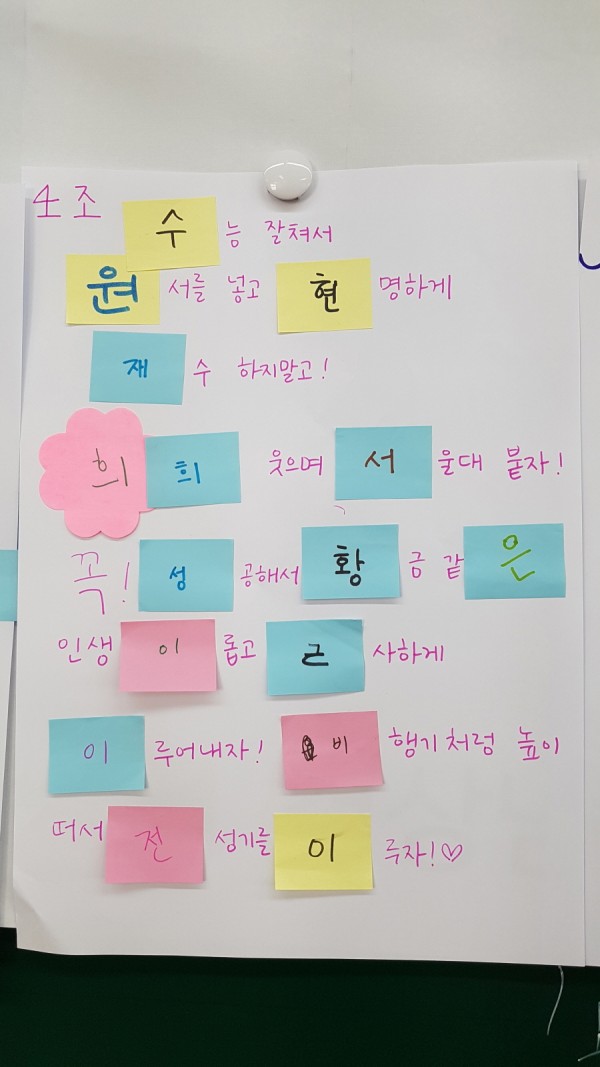 4조
수능 잘쳐서
원서를 넣고 현명하게
재수 하지말고!
희희 웃으며 서울대 붙자!
꼭! 성공해서 황금 같은
인생 이롭고 근사하게
이루어내자! 비행기처럼 높이
떠서 전성기를 이루자!♡